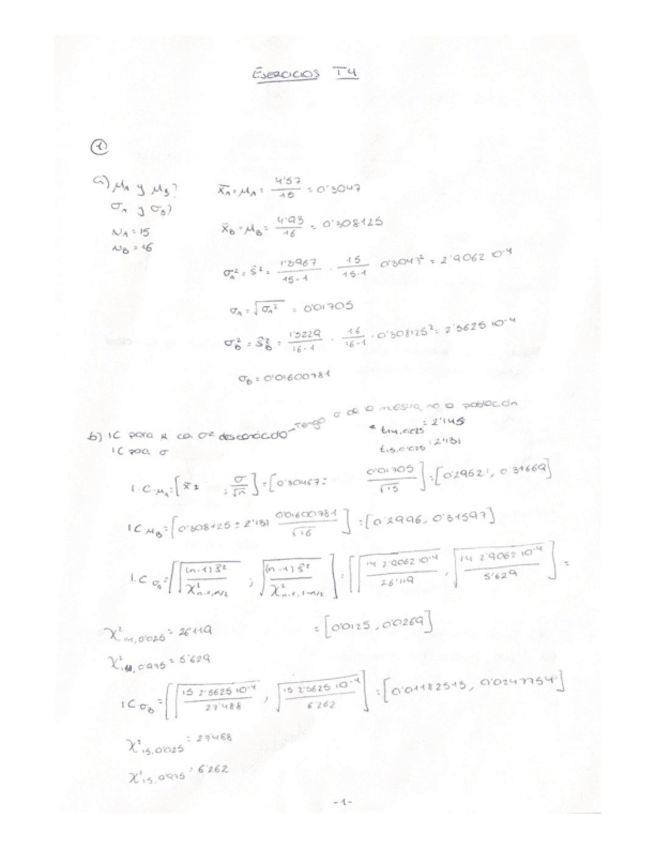 EJERCICIOS T4
①
a) μA y μB? x̄A = μA = 4'57/15 = 0'3047
σA y σB?
NA = 15 x̄B = μB = 4'93/16 = 0'308125
NB = 16
σA² = ŝ² = 1'3967/15-1 · 15/15-1 0'3047² = 2'9062 10⁻⁴
σA = √σA² = 0'01705
σB² = ŝB² = 1'5229/16-1 · 16/16-1 · 0'308125² = 2'5625 10⁻⁴
σB = 0'01600781
b) IC para μ con σ² desconocido → Tengo σ de la muestra no la población
IC para σ * t14,0'025 = 2'145
t15,0'025 = 2'131
I.C μA = [x̄ ± σ/√n] = [0'30467 ± 0'01705/√15] = [0'2952, 0'31669]
IC μB = [0'308125 ± 2'131 0'01600781/√16] = [0'2996, 0'31597]
I.C σA = [√(n-1)ŝ²/χ²n-1,α/2 ; √(n-1)ŝ²/χ²n-1,1-α/2] = [√14 2'9062 10⁻⁴/26'119 , √14 2'9062 10⁻⁴/5'629] =
χ²14,0'025 = 26'119 = [0'0125, 0'0269]
χ²14,0'975 = 5'629
I.C σB = [√15 2'5625 10⁻⁴/27'488 , √15 2'5625 10⁻⁴/6'262] = [0'01182515, 0'0247754]
χ²15,0'025 = 27'488
χ²15,0'975 = 6'262
-1-